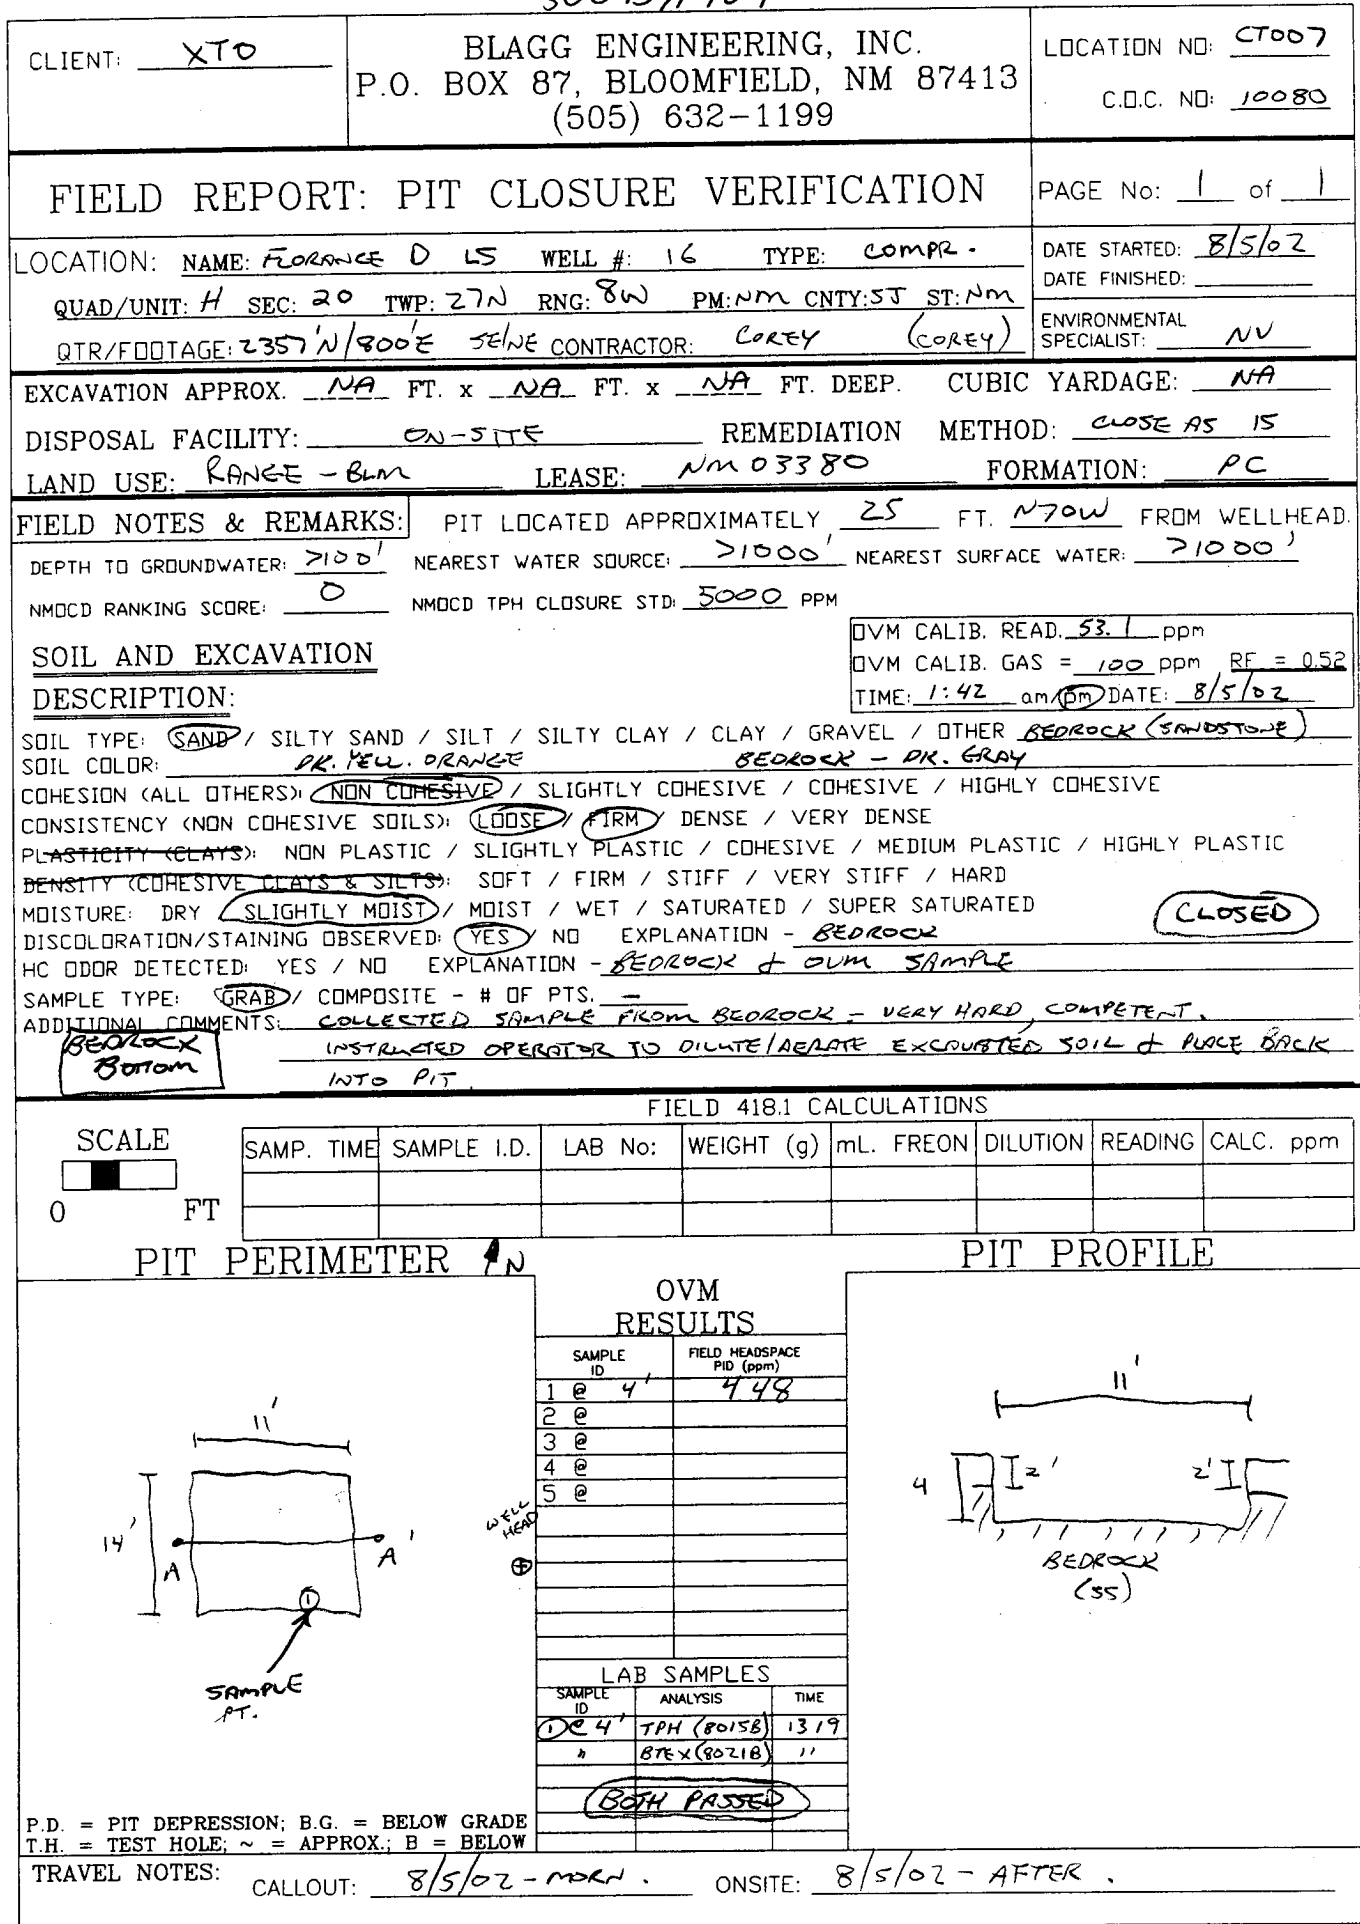 CLIENT: XTO
BLAGG ENGINEERING, INC.
P.O. BOX 87, BLOOMFIELD, NM 87413
(505) 632-1199
LOCATION NO: CT007
C.O.C. NO: 10080
FIELD REPORT: PIT CLOSURE VERIFICATION
PAGE No: 1 of 1
LOCATION: NAME: FLORANCE D LS WELL #: 16 TYPE: COMPR.
QUAD/UNIT: H SEC: 20 TWP: 27N RNG: 8W PM: NM CNTY: SJ ST: NM
QTR/FOOTAGE: 2357'N/800'E SE/NE CONTRACTOR: COREY (COREY)
DATE STARTED: 8/5/02
DATE FINISHED:
ENVIRONMENTAL
SPECIALIST: NV
EXCAVATION APPROX. NA FT. x NA FT. x NA FT. DEEP. CUBIC YARDAGE: NA
DISPOSAL FACILITY: ON-SITE REMEDIATION METHOD: CLOSE AS IS
LAND USE: RANGE - BLM LEASE: NM 03380 FORMATION: PC
FIELD NOTES & REMARKS: PIT LOCATED APPROXIMATELY 25 FT. N70W FROM WELLHEAD.
DEPTH TO GROUNDWATER: >100' NEAREST WATER SOURCE: >1000' NEAREST SURFACE WATER: >1000'
NMOCD RANKING SCORE: 0 NMOCD TPH CLOSURE STD: 5000 PPM
OVM CALIB. READ. 53.1 ppm
OVM CALIB. GAS = 100 ppm RF = 0.52
TIME: 1:42 am/pm DATE: 8/5/02
SOIL AND EXCAVATION
DESCRIPTION:
SOIL TYPE: SAND / SILTY SAND / SILT / SILTY CLAY / CLAY / GRAVEL / OTHER BEDROCK (SANDSTONE)
SOIL COLOR: DK. YELL. ORANGE BEDROCK - DK. GRAY
COHESION (ALL OTHERS): NON COHESIVE / SLIGHTLY COHESIVE / COHESIVE / HIGHLY COHESIVE
CONSISTENCY (NON COHESIVE SOILS): LOOSE / FIRM / DENSE / VERY DENSE
PLASTICITY (CLAYS): NON PLASTIC / SLIGHTLY PLASTIC / COHESIVE / MEDIUM PLASTIC / HIGHLY PLASTIC
DENSITY (COHESIVE CLAYS & SILTS): SOFT / FIRM / STIFF / VERY STIFF / HARD
MOISTURE: DRY / SLIGHTLY MOIST / MOIST / WET / SATURATED / SUPER SATURATED
CLOSED
DISCOLORATION/STAINING OBSERVED: YES / NO EXPLANATION - BEDROCK
HC ODOR DETECTED: YES / NO EXPLANATION - BEDROCK & OVM SAMPLE
SAMPLE TYPE: GRAB / COMPOSITE - # OF PTS. -
ADDITIONAL COMMENTS: COLLECTED SAMPLE FROM BEDROCK - VERY HARD, COMPETENT.
INSTRUCTED OPERATOR TO DILUTE/AERATE EXCAVATED SOIL & PLACE BACK
INTO PIT.
BEDROCK
BOTTOM
FIELD 418.1 CALCULATIONS
SCALE
0 FT
SAMP. TIME SAMPLE I.D. LAB No: WEIGHT (g) mL. FREON DILUTION READING CALC. ppm
PIT PERIMETER N
PIT PROFILE
OVM
RESULTS
SAMPLE ID FIELD HEADSPACE PID (ppm)
1 @ 4' 448
2 @
3 @
4 @
5 @
11'
14'
A
A'
1
SAMPLE
PT.
WELL
HEAD
11'
4
2'
2'
BEDROCK
(SS)
LAB SAMPLES
SAMPLE ID ANALYSIS TIME
① @ 4' TPH (8015B) 1319
" BTEX (8021B) "
BOTH PASSED
P.D. = PIT DEPRESSION; B.G. = BELOW GRADE
T.H. = TEST HOLE; ~ = APPROX.; B = BELOW
TRAVEL NOTES: CALLOUT: 8/5/02 - MORN. ONSITE: 8/5/02 - AFTER.